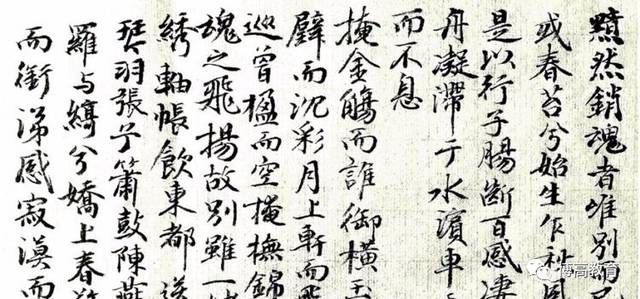 黯然銷魂者唯別而已
或春苔兮始生乍秋
是以行子腸斷百感凄
舟凝滯于水濱車
而不息
掩金觴而誰御橫玉
壁而沉彩月上軒而飛
巡曾楹而空掩撫錦
魂之飛揚故別雖一
綉軸帳飲東都送
琴羽張兮簫鼓陳燕
羅与綺兮嬌上春
而銜涕感寂漠而
博高教育